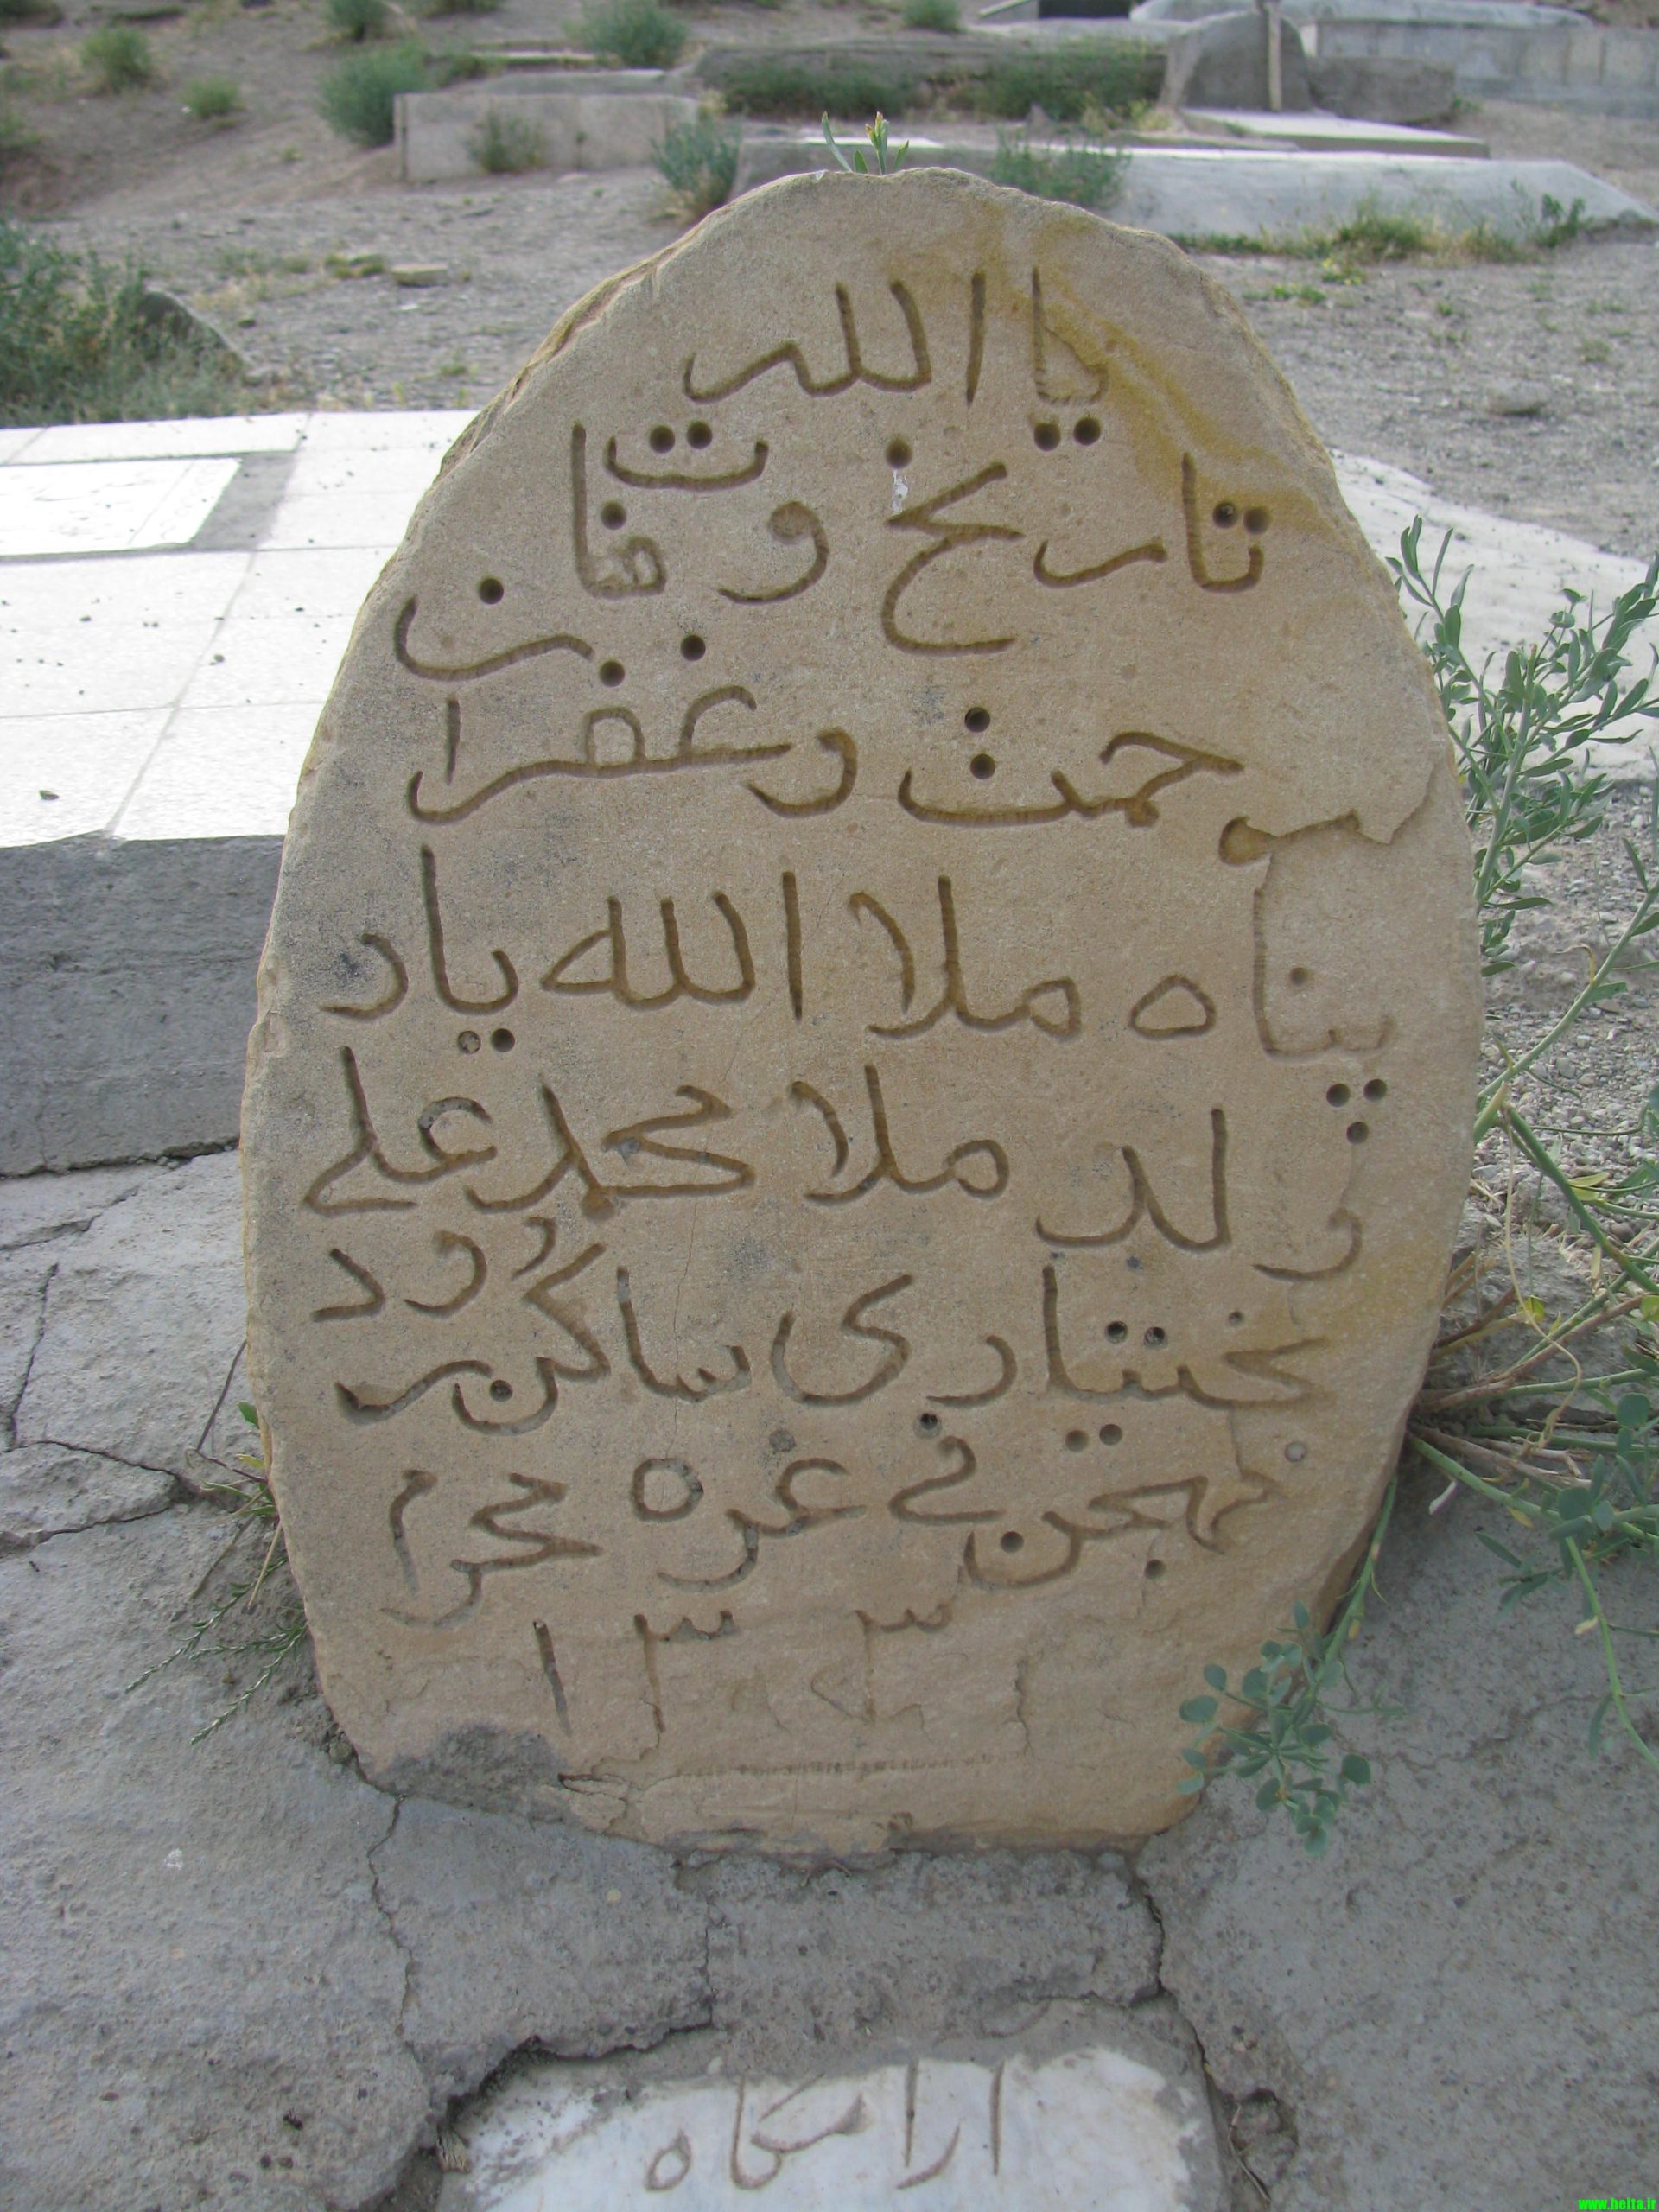 یا الله
تاریخ وفات
رحمت و غفران
پناه ملا الله یار
ولد ملا محمد علی
بختیاری ساکن بر
و رد
نهجن فی غره محرم
۱۳
آرامگاه
www.heita.ir